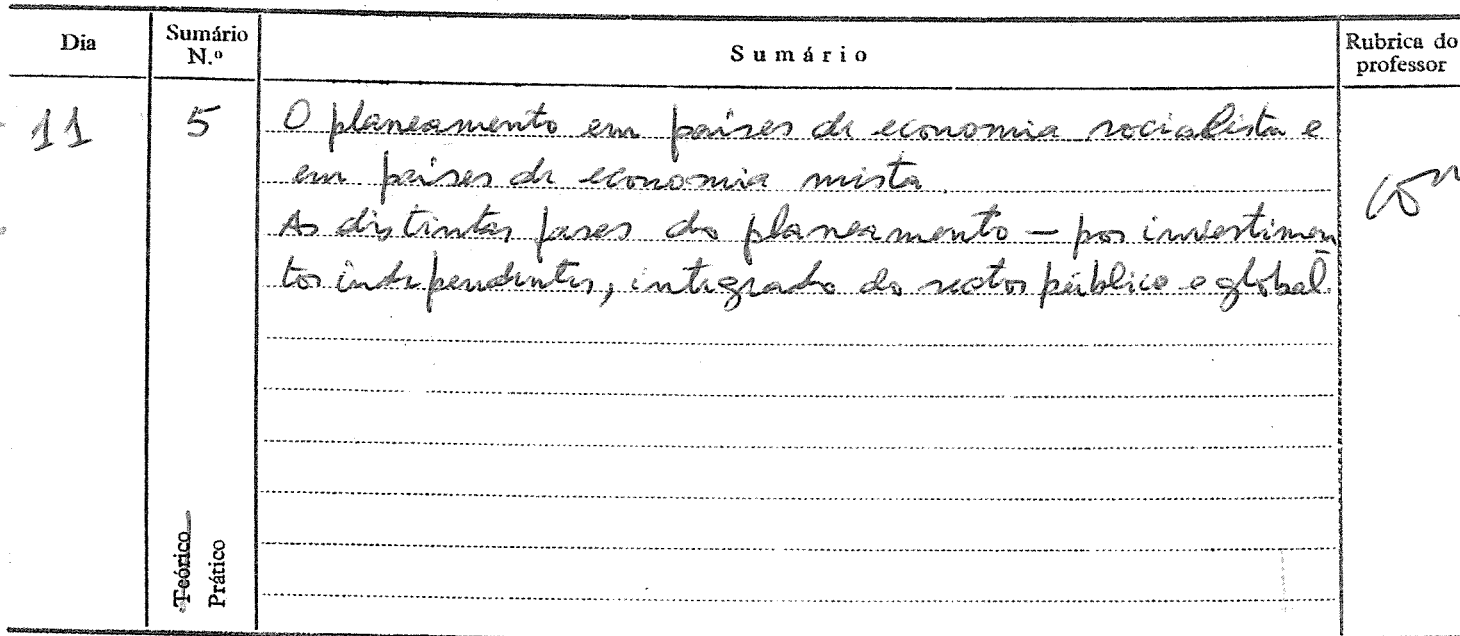 Dia
Sumário N.º
Sumário
Rubrica do professor
11
5
O planeamento em países de economia socialista e
em países de economia mista
As distintas fases do planeamento — por investimen
tos independentes, integrado do sector público e global.
Teórico
Prático